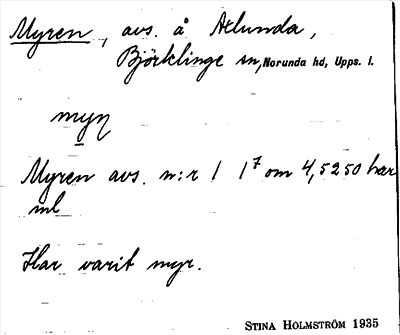 Myren, avs. å Axlunda,
Björklinge sn, Norunda hd, Upps. l.
myṇ
Myren avs. n:r 1 1⁷ om 4,5250 har
ml
Har varit myr.
STINA HOLMSTRÖM 1935